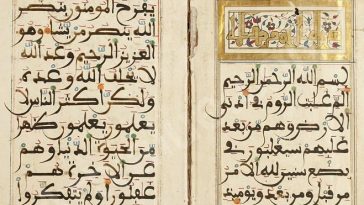 بسم الله الرحمن الرحيم
الم غلبت الروم في ادنى
الارض وهم من بعد
غلبهم سيغلبون في
بضع سنين لله الامر
من قبل ومن بعد ويومئذ
يفرح المومنون بنصر
الله ينصر من يشاء وهو
العزيز الرحيم وعد الله
لا يخلف الله وعده
ولكن اكثر الناس لا
يعلمون يعلمون ظهرا
من الحيوة الدنيا وهم
عن الاخرة هم
غفلون اولم يتفكروا